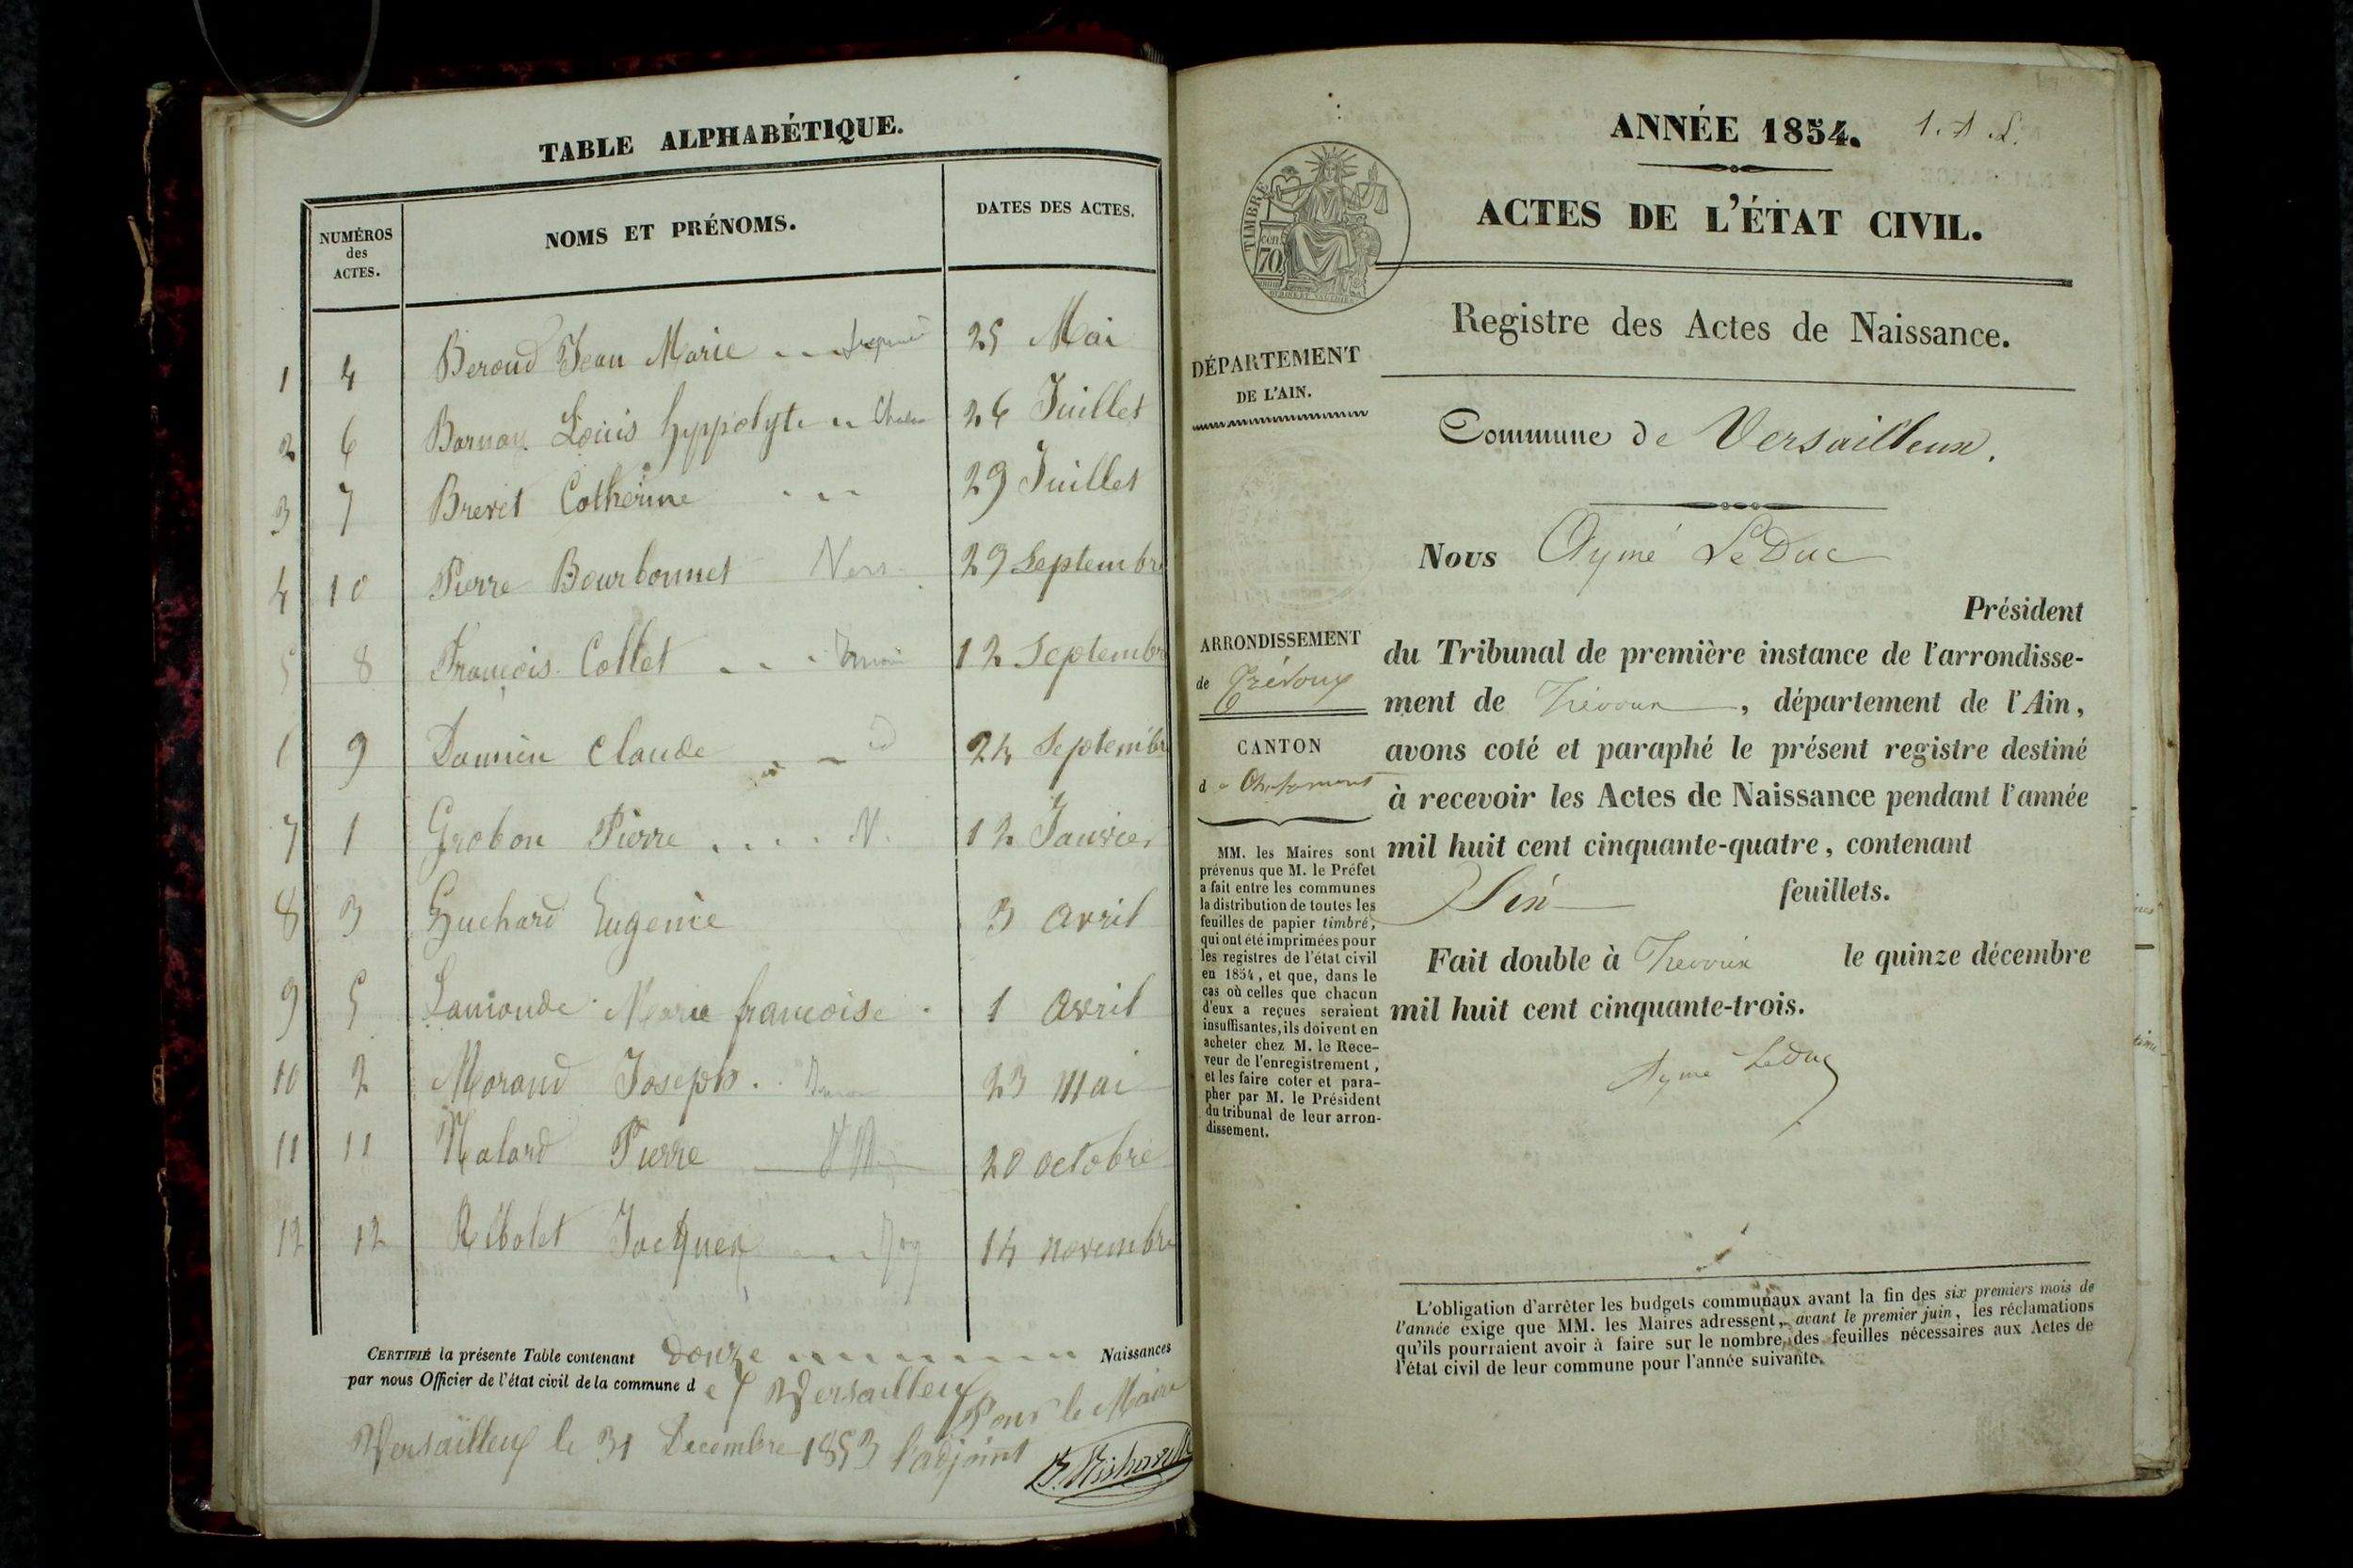 TABLE ALPHABÉTIQUE.
NUMÉROS
des
ACTES.
NOMS ET PRÉNOMS.
DATES DES ACTES.
1 4 Beroud Jean Marie 25 Mai
2 6 Louis hyppolyte 26 Juillet
3 7 Brevet Catherine 29 Juillet
4 10 Pierre Bourbonnet Vers 29 Septembre
5 8 François Collet 12 Septembre
9 Damien Claude id 24 Septembre
7 1 Grobon Pierre V. 12 Janvier
8 3 Guchard Eugenie 3 avril
9 5 Lamonde Marie francoise 1 avril
10 2 Morand Joseph 23 mai
11 11 Nalard Pierre 20 octobre
12 12 Ribolet Jacques 14 novembre
CERTIFIÉ la présente Table contenant douze Naissances
par nous Officier de l'état civil de la commune de Versailleux
Versailleux le 31 Decembre 1853 Pour le Maire
l'adjoint
ANNÉE 1854.
ACTES DE L'ÉTAT CIVIL.
TIMBRE
cen
70
Registre des Actes de Naissance.
DÉPARTEMENT
DE L'AIN.
Commune de Versailleux.
Nous Aymé LeDuc
Président
du Tribunal de première instance de l'arrondisse-
ment de Trévoux, département de l'Ain,
avons coté et paraphé le présent registre destiné
à recevoir les Actes de Naissance pendant l'année
mil huit cent cinquante-quatre, contenant
Six feuillets.
Fait double à Trevoux le quinze décembre
mil huit cent cinquante-trois.
Aymé LeDuc
ARRONDISSEMENT
de Trévoux
CANTON
de
MM. les Maires sont
prévenus que M. le Préfet
a fait entre les communes
la distribution de toutes les
feuilles de papier timbré,
qui ont été imprimées pour
les registres de l'état civil
en 1854, et que, dans le
cas où celles que chacun
d'eux a reçues seraient
insuffisantes, ils doivent en
acheter chez M. le Rece-
veur de l'enregistrement,
et les faire coter et para-
pher par M. le Président
du tribunal de leur arron-
dissement.
L'obligation d'arrêter les budgets communaux avant la fin des six premiers mois de
l'année exige que MM. les Maires adressent, avant le premier juin, les réclamations
qu'ils pourraient avoir à faire sur le nombre des feuilles nécessaires aux Actes de
l'état civil de leur commune pour l'année suivante.